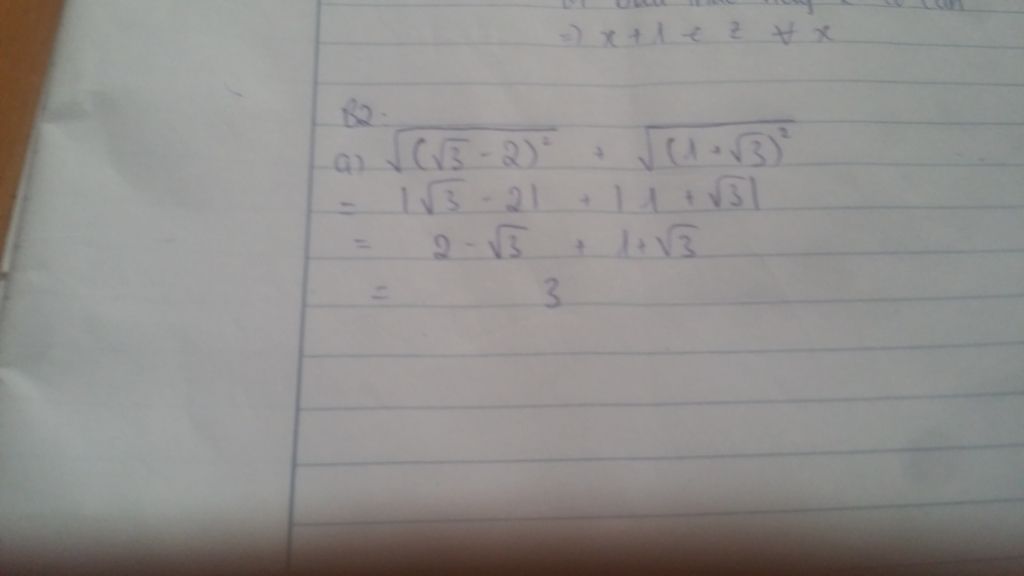 =) x + 1 ∈ Z ∀ x
B2.
a) √(√3 - 2)² + √(1 + √3)²
= |√3 - 2| + |1 + √3|
= 2 - √3 + 1 + √3
= 3